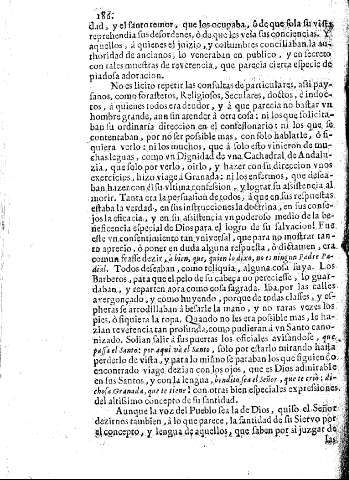 186.
dad, y el santo temor, que los ocupaba, ò de que sola su vista
reprehendia sus desordenes, ò de que les veìa sus conciencias. Y
aquellos, à quienes el juizio, y costumbres conciliaban la au-
thoridad de ancianos, lo veneraban en publico, y en secreto
con tales muestras de reverencia, que parecia cierta especie de
piadosa adoracion.
No es licito repetir las consultas de particulares, assi pay-
sanos, como forasteros, Religiosos, Seculares, doctos, è indoc-
tos, à quienes todos era deudor, y à que parecia no bastar vn
hombre grande, aun sin atender à otra cosa: ni los que solicita-
ban su ordinaria direccion en el confessionario: ni los que se
contentaban, por no ser possible mas, con solo hablarlo, ò si-
quiera verlo: ni los muchos, que à solo esto vinieron de mu-
chas leguas; como vn Dignidad de vna Cathedral, de Andalu-
zia, que solo por verlo, oirlo, y hazer con su direccion vnos
exercicios, hizo viage à Granada: ni los enfermos, que desea-
ban hazer con èl su vltima confession, y lograr su assistencia al
morir. Tanta era la persuasion de todos, à que en sus respuestas
estaba la verdad, en sus instrucciones la doctrina, en sus conse-
jos la eficacia, y en su assistencia vn poderoso medio de la be-
neficencia especial de Dios para el logro de su salvacion! Fue
este vn consentimiento tan vniversal, que para no mostrar tan-
to aprecio, ò poner en duda alguna respuesta, ò dictamen, era
comun frasse dezir, à bien, que, quien lo dixo, no es ningun Padre Pa-
dial. Todos deseaban, como reliquia, alguna cosa suya. Los
Barberos, para que el pelo de su cabeza no pereciesse, lo guar-
daban, y repartian aora como cosa sagrada. Iba por las calles
avergonçado, y como huyendo, porque de todas classes, y es-
pheras se arrodillaban à besarle la mano, y no raras vezes los
pies, ò siquiera la ropa. Quando no era possible mas, le ha-
zian reverencia tan profunda, como pudieran à vn Santo cano-
nizado. Solian salir à sus puertas los oficiales avisandose, que
passa el Santo: por aqui và el Santo, solo por estarlo mirando hasta
perderlo de vista, y para lo mismo se paraban los que siguiendo
encontrado viage, dezian con los ojos, que es Dios admirable
en sus Santos, y con la lengua, bendito sea el Señor, que te criò: di-
chosa Granada, que te tiene! con otras bien especiales expressiones
del altissimo concepto de su santidad.
Aunque la voz del Pueblo sea la de Dios, quiso el Señor
dezirnos tambien, à lo que parece, la santidad de su Siervo por
el concepto, y lengua de aquellos, que saben por sì juzgar de
las